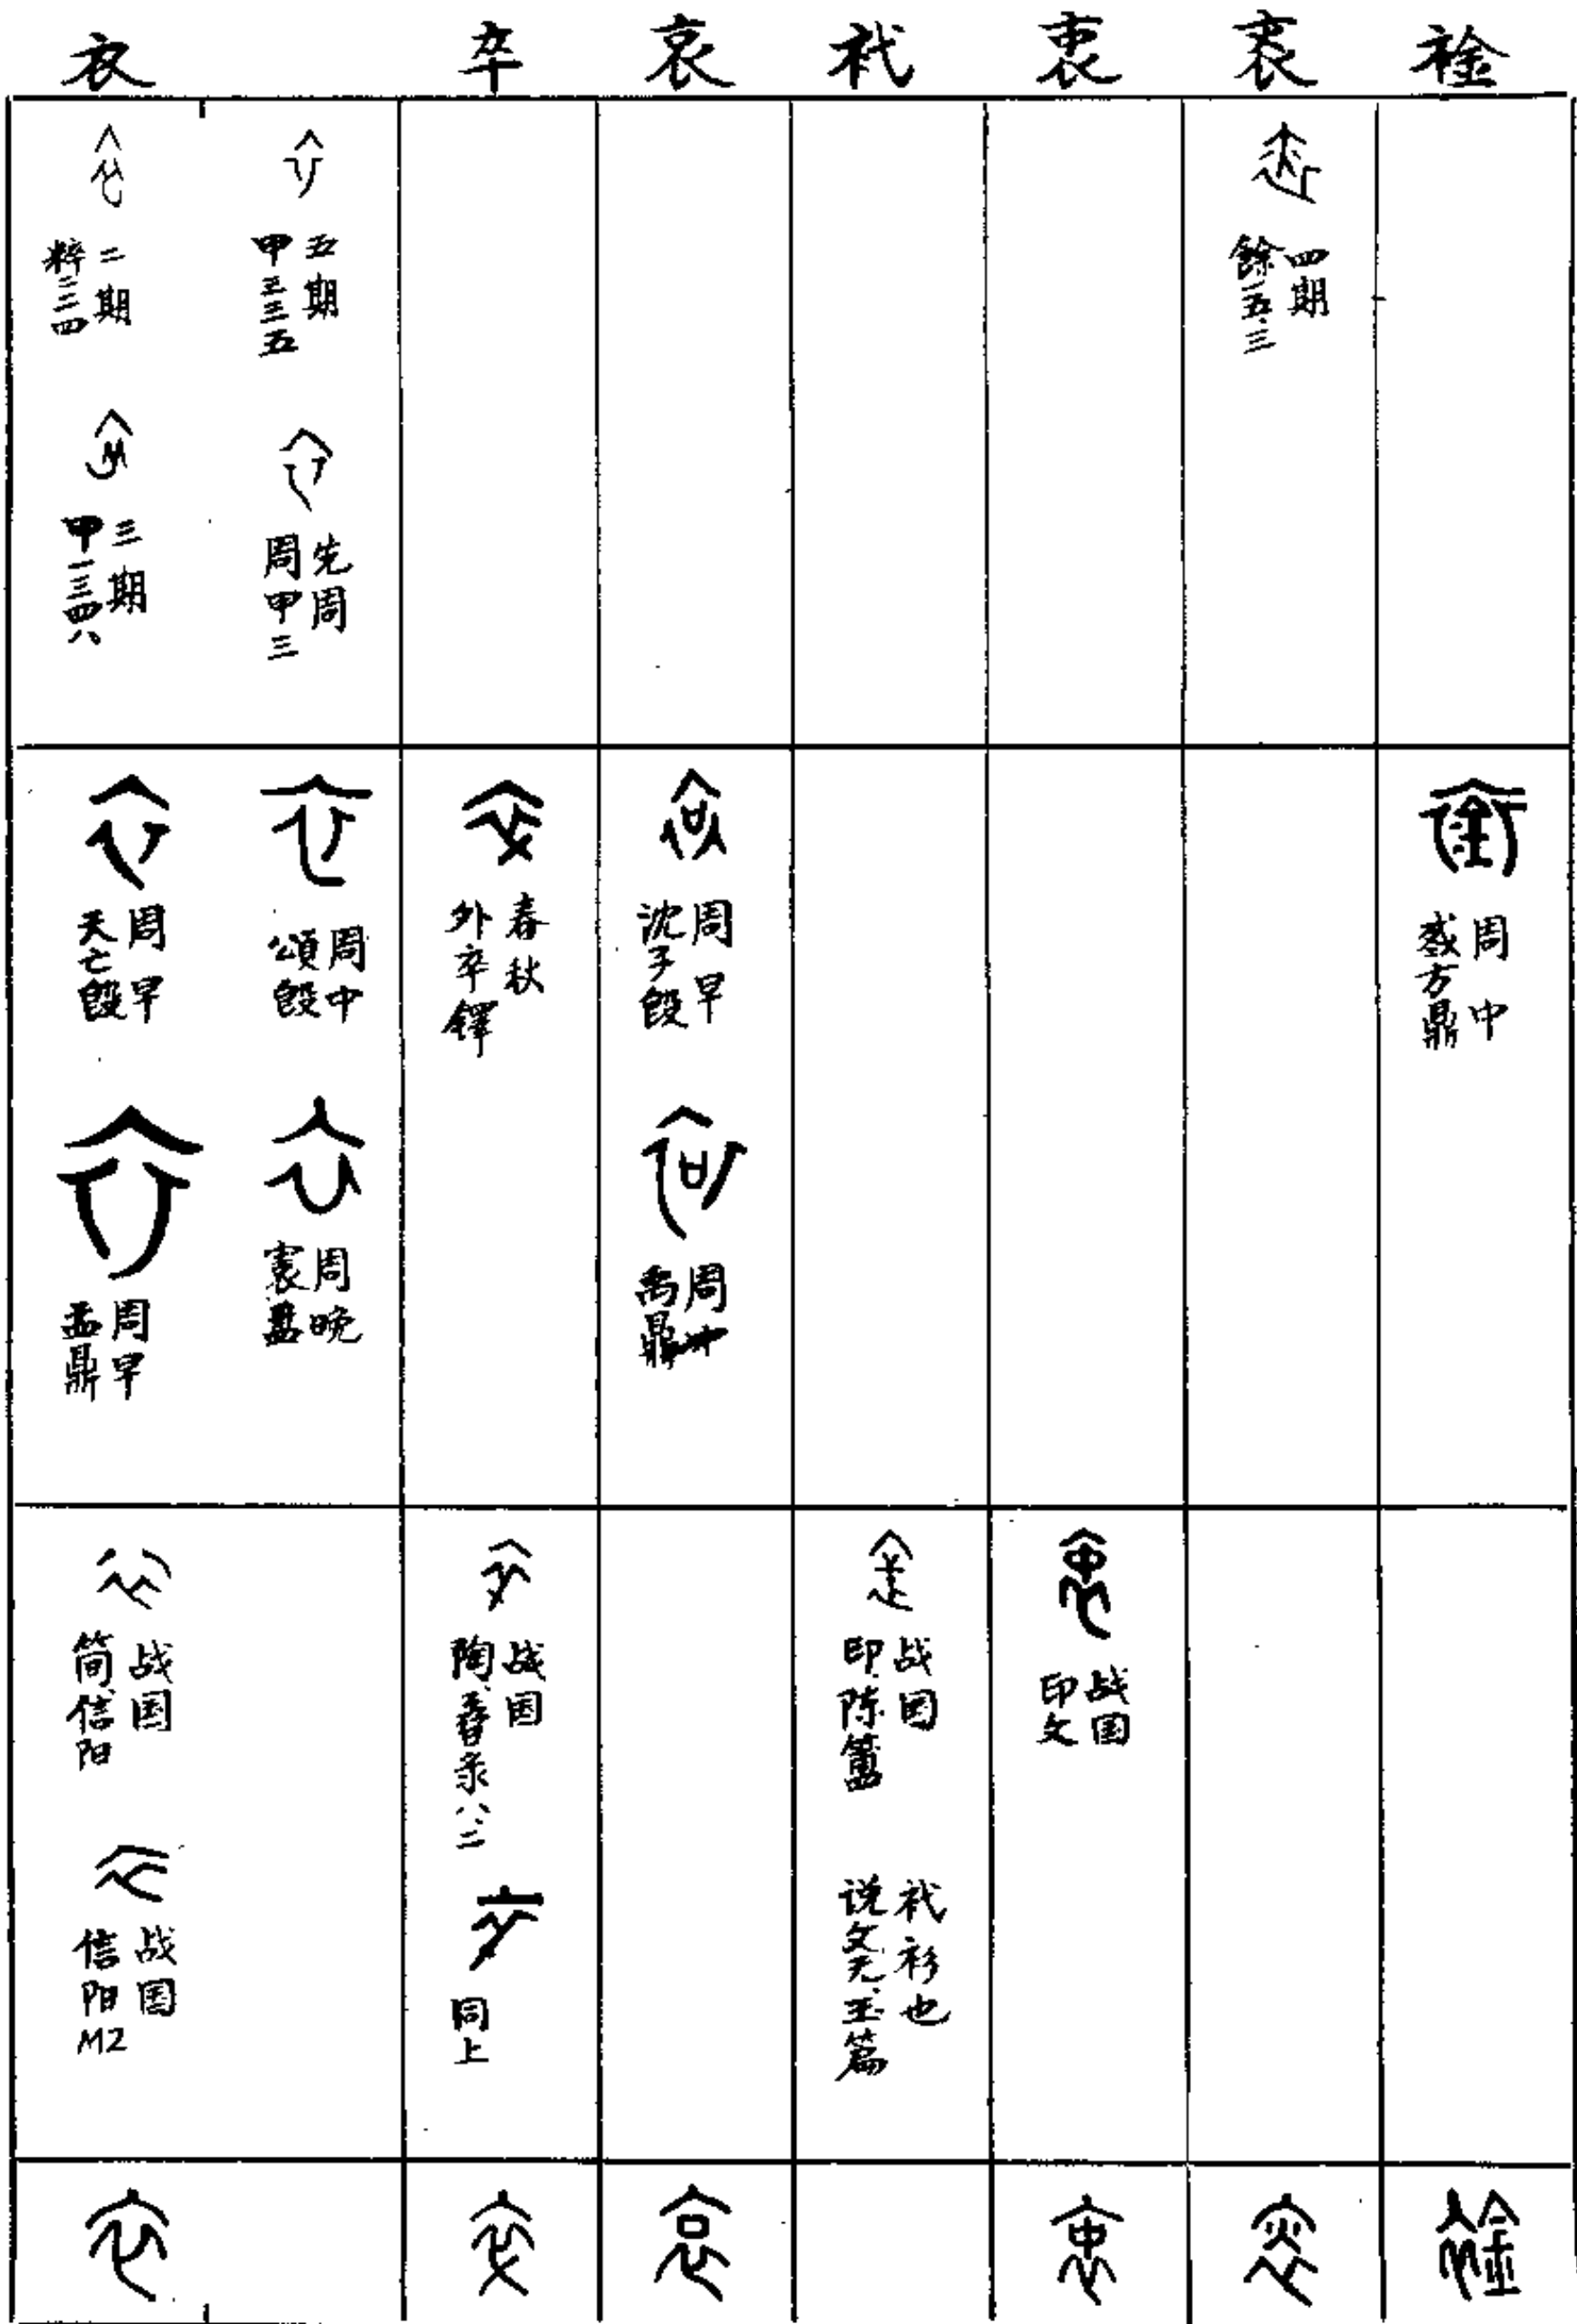 衣 卒 哀 袛 衷 裘 䘳
二期
粹二三四
五期
甲三三三五
四期
餘五.三
三期
甲一三四八
先周
周甲三
周早
天亡𣪘
周中
頌𣪘
春秋
外卒鐸
周早
沈子𣪘
周中
方鼎
周早
盂鼎
周晚
盤
周
禹鼎
战国
简信阳
战国
陶舂录八.三
战国
印.陈簠
战国
印文
战国
信阳M2
同上
衫也
说文无.玉篇